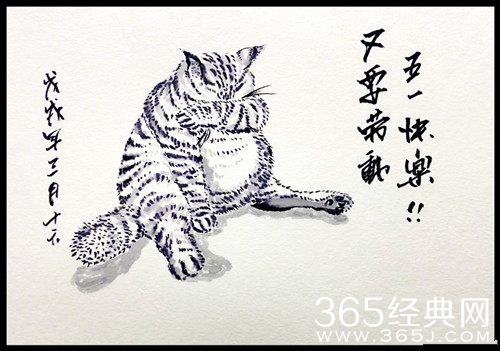 五一快樂!!
又要劳動
戊戌年三月十六
365经典网
WWW.365J.COM